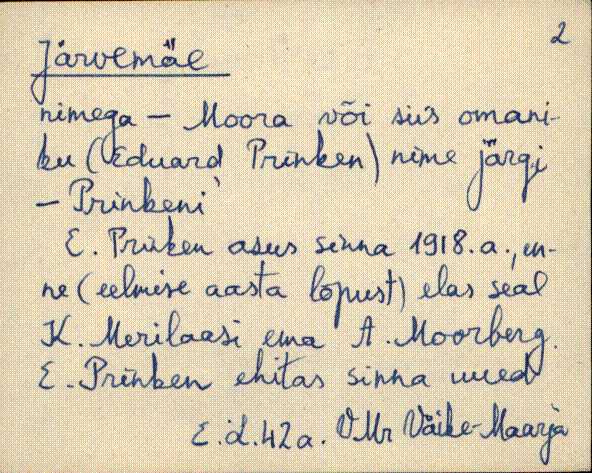 2
Järvemäe
nimega - Moora või siis omani-
ku (Eduard Prinken) nime järgi
- Prinkeni
E. Prinken asus sinna 1918. a., en-
ne (eelmise aasta lõpust) elas seal
K. Merilaasi ema A. Moorberg.
E. Prinken ehitas sinna uued
E. L. 42 a. VMr Väike-Maarja